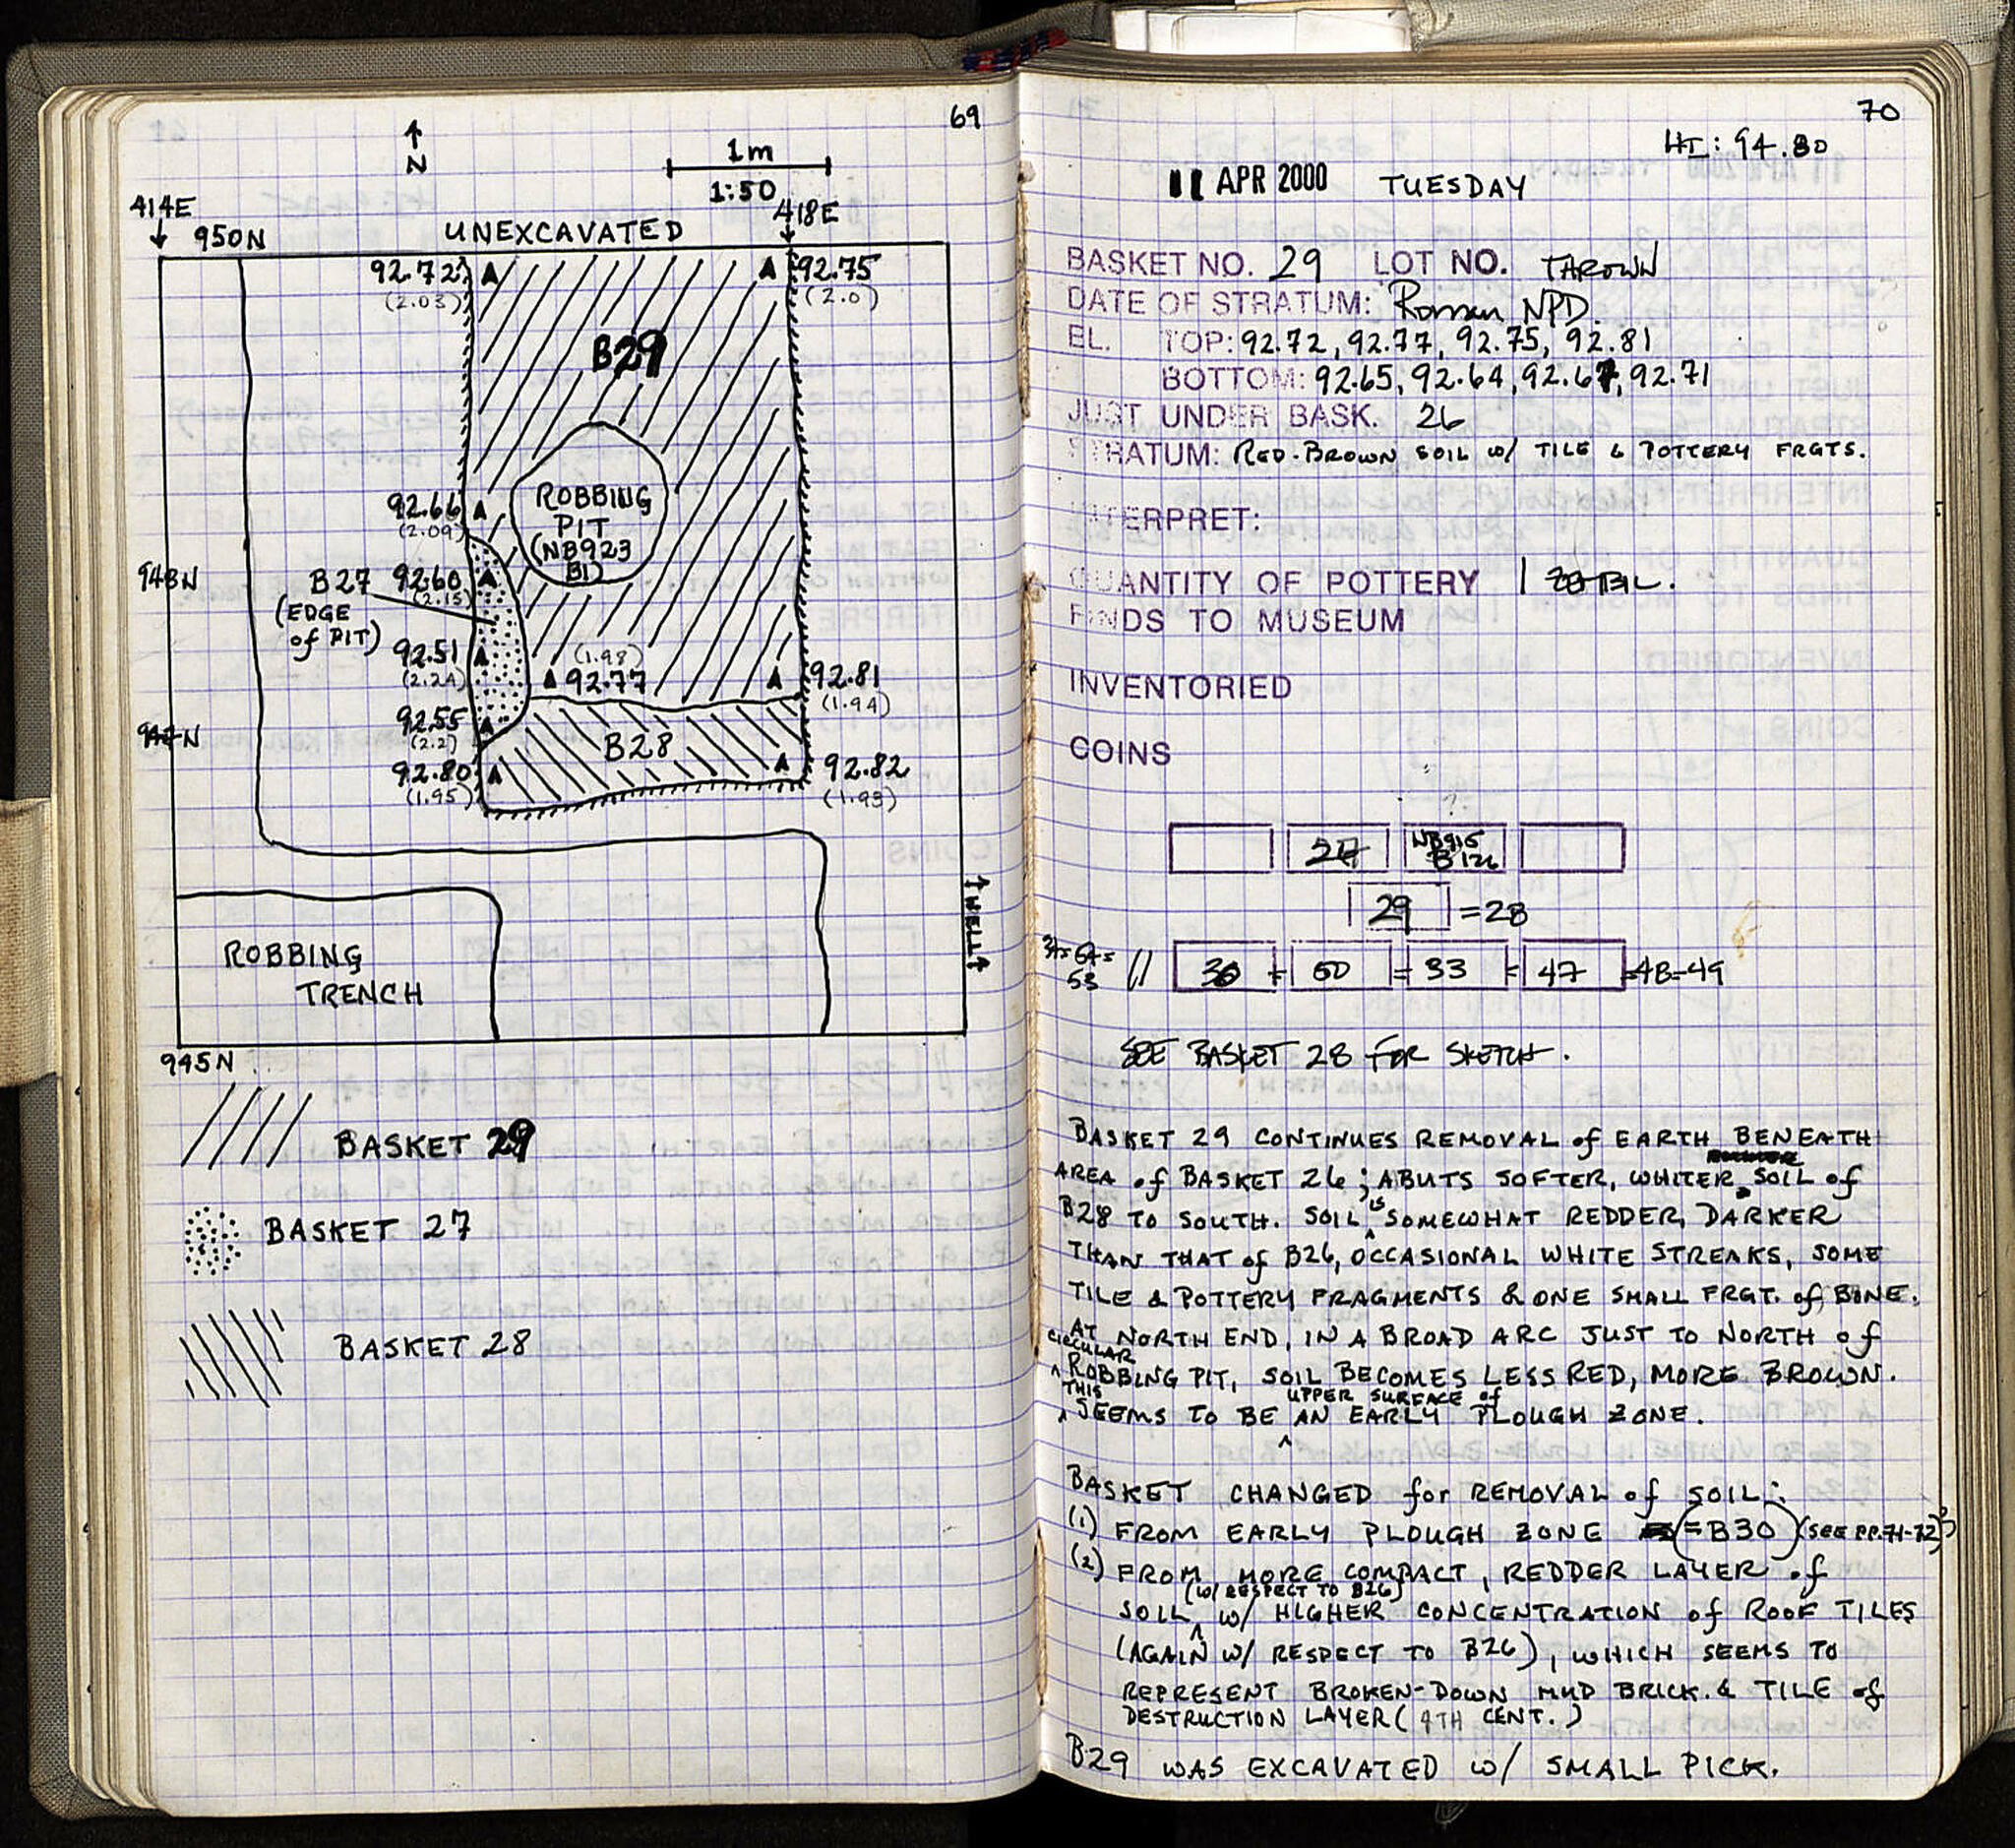 69
↑
N
1m
1:50
414E
↓
418E
↓
950N
UNEXCAVATED
92.72
(2.03)
92.75
(2.0)
B29
92.66
(2.09)
ROBBING
PIT
(NB923
B1)
948N
B27
(EDGE
of PIT)
92.60
(2.15)
92.51
(2.24)
(1.98)
92.77
92.81
(1.94)
947N
92.55
(2.2)
B28
92.80
(1.95)
92.82
(1.93)
↑WELL↑
ROBBING
TRENCH
945N
BASKET 29
BASKET 27
BASKET 28
70
HI: 94.80
11 APR 2000 TUESDAY
BASKET NO. 29 LOT NO. THROWN
DATE OF STRATUM: Roman NPD.
EL. TOP: 92.72, 92.77, 92.75, 92.81
BOTTOM: 92.65, 92.64, 92.67, 92.71
JUST UNDER BASK. 26
STRATUM: RED-BROWN SOIL W/ TILE & POTTERY FRGTS.
INTERPRET:
QUANTITY OF POTTERY 1
FINDS TO MUSEUM
INVENTORIED
COINS
NB915
B126
29 =28
// 30 = 50 = 33 = 47 =48=49
53
SEE BASKET 28 FOR SKETCH.
BASKET 29 CONTINUES REMOVAL of EARTH BENEATH
AREA of BASKET 26; ABUTS SOFTER, WHITER SOIL of
B28 TO SOUTH. SOIL IS SOMEWHAT REDDER, DARKER
THAN THAT of B26, OCCASIONAL WHITE STREAKS, SOME
TILE & POTTERY FRAGMENTS & ONE SMALL FRGT. of BONE.
AT NORTH END, IN A BROAD ARC JUST TO NORTH of
CIRCULAR ROBBING PIT, SOIL BECOMES LESS RED, MORE BROWN.
THIS SEEMS TO BE UPPER SURFACE of AN EARLY PLOUGH ZONE.
BASKET CHANGED for REMOVAL of SOIL:
(1) FROM EARLY PLOUGH ZONE (=B30) (SEE PP.71-72);
(2) FROM MORE COMPACT, REDDER LAYER of
SOIL (W/ RESPECT TO B26) W/ HIGHER CONCENTRATION of ROOF TILES
(AGAIN W/ RESPECT TO B26), WHICH SEEMS TO
REPRESENT BROKEN-DOWN MUD BRICK & TILE of
DESTRUCTION LAYER (4TH CENT.)
B29 WAS EXCAVATED W/ SMALL PICK.